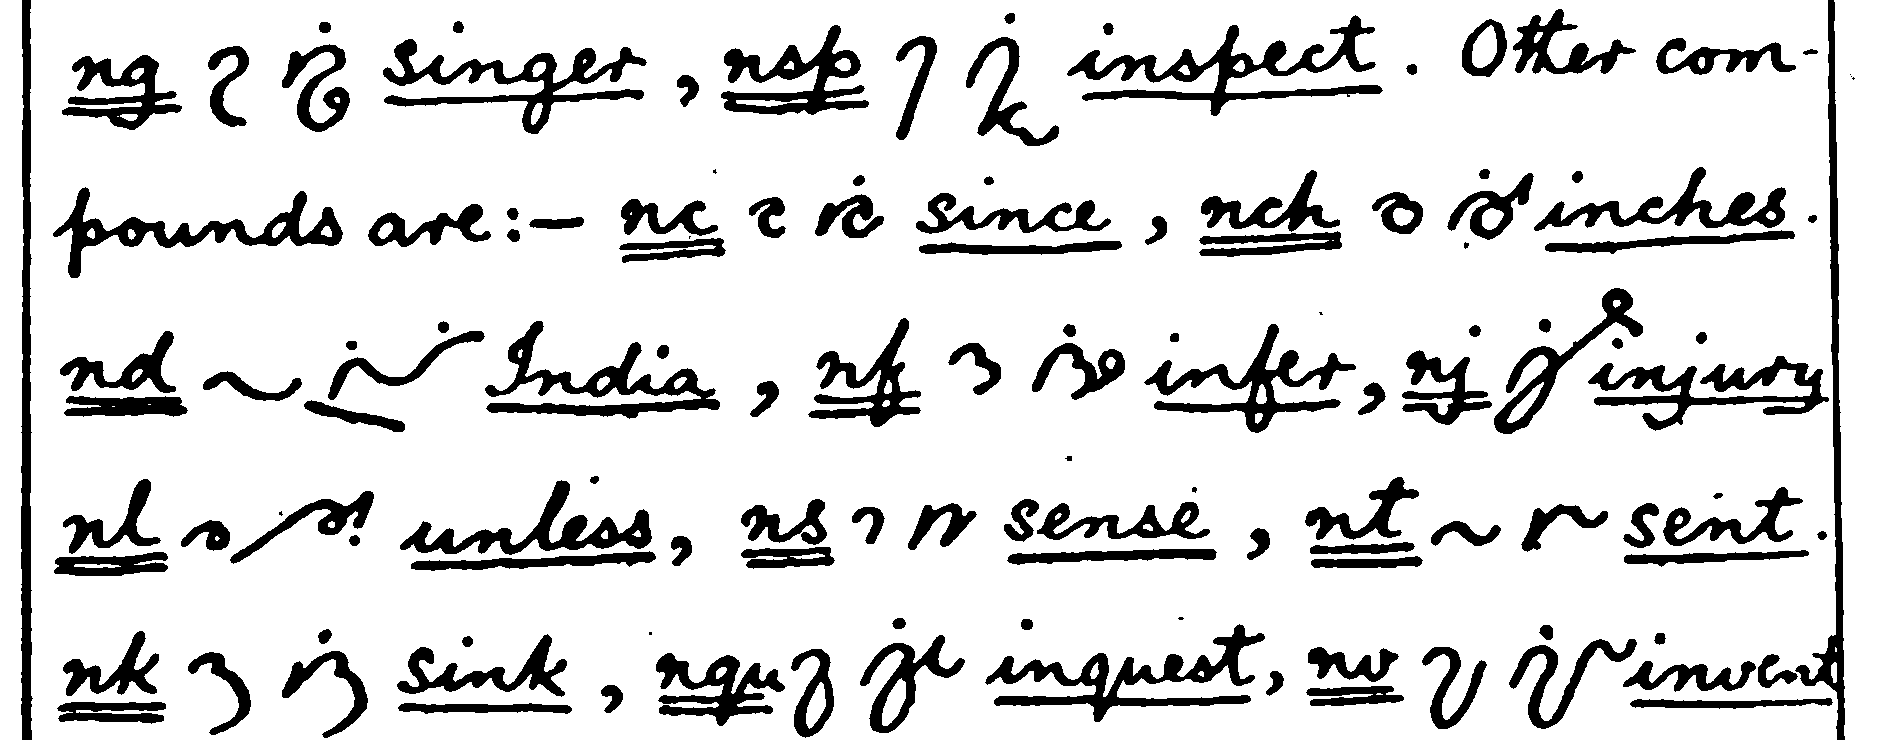 ng singer, nsp inspect. Other com-
pounds are:— nc since, nch inches.
nd India, nf infer, nj injury
nl unless, ns sense, nt sent.
nk sink, nqu inquest, nv invent